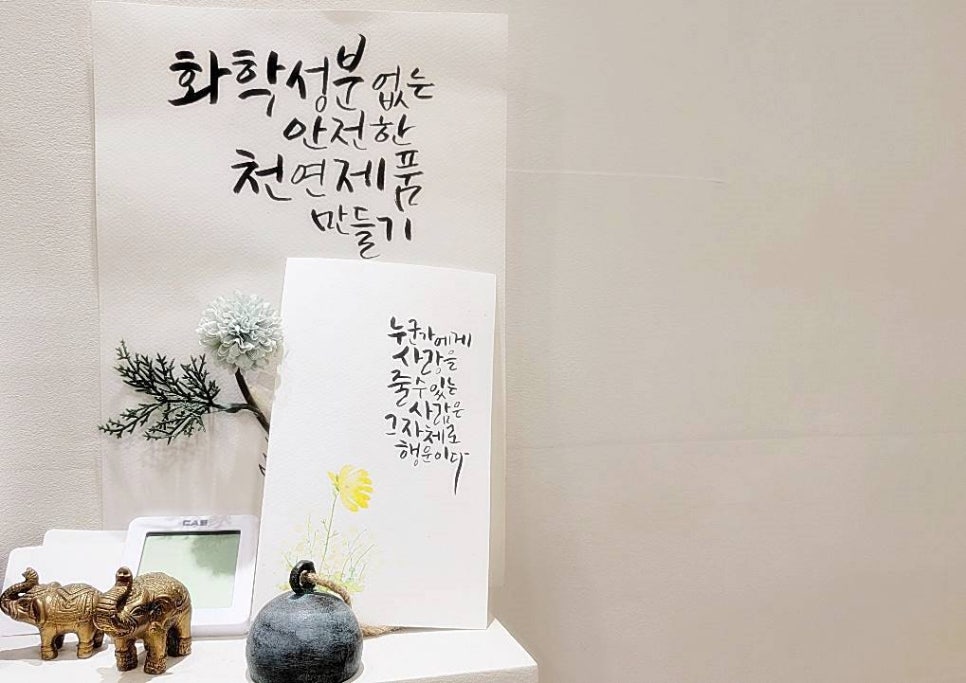 화학성분 없는
안전한
천연제품
만들기
누군가에게
사랑을
줄 수 있는
사람은
그 자체로
행운이다
CAS